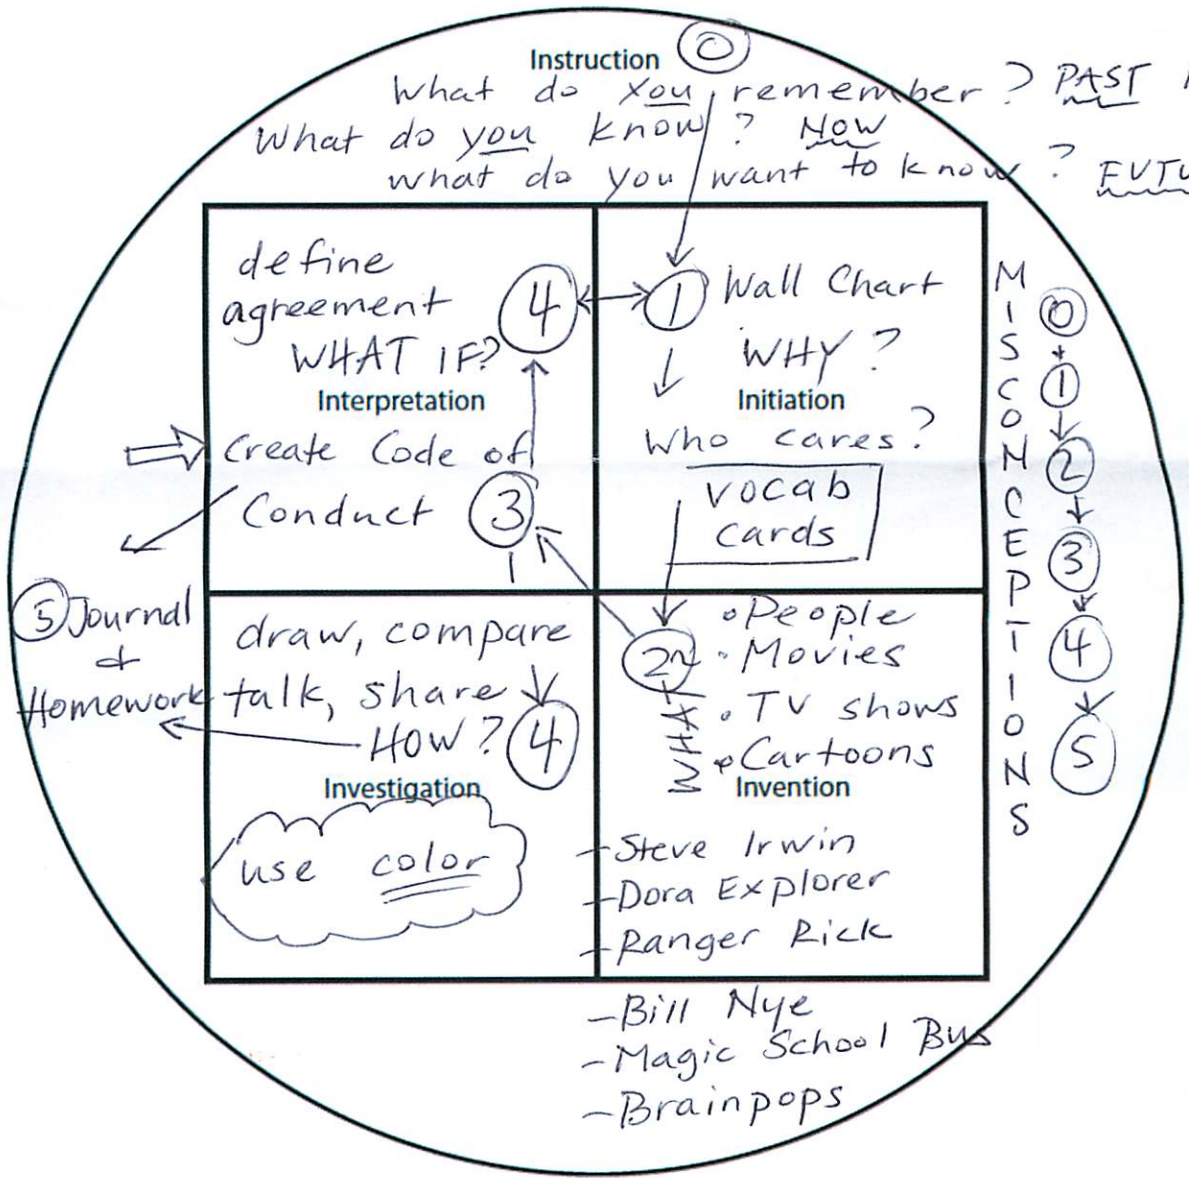 Instruction 0
What do you remember? PAST
What do you know? NOW
What do you want to know?
define
agreement 4
WHAT IF?
Interpretation
Create Code of
Conduct 3
1 Wall Chart
WHY?
Initiation
Who cares?
vocab
cards
MISCONCEPTIONS
0
1
2
3
4
5
5 Journal
+
Homework
draw, compare
talk, share
HOW? 4
Investigation
use color
2
WHAT
• People
• Movies
• TV shows
• Cartoons
Invention
- Steve Irwin
- Dora Explorer
- Ranger Rick
- Bill Nye
- Magic School Bus
- Brainpops